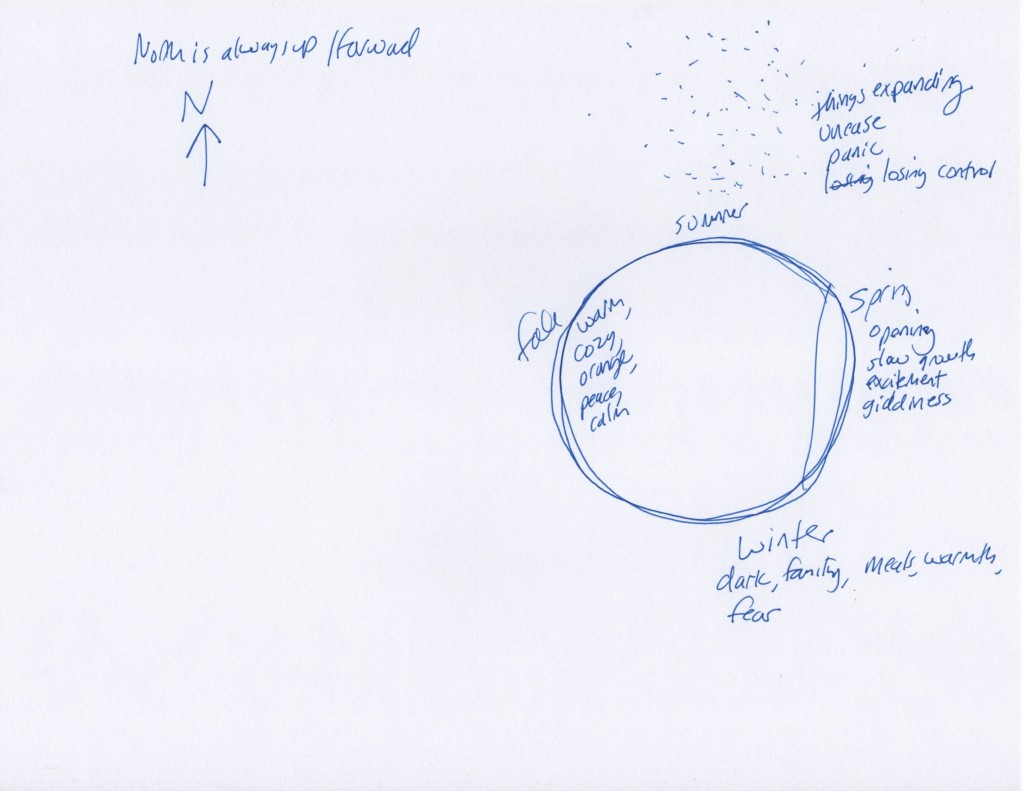 North is always up / forward
N
things expanding
unease
panic
losing losing control
summer
Spring
opening
slow growth
excitement
giddiness
Fall
warm,
cozy,
orange,
peace,
calm
Winter
dark, family, meals, warmth,
fear